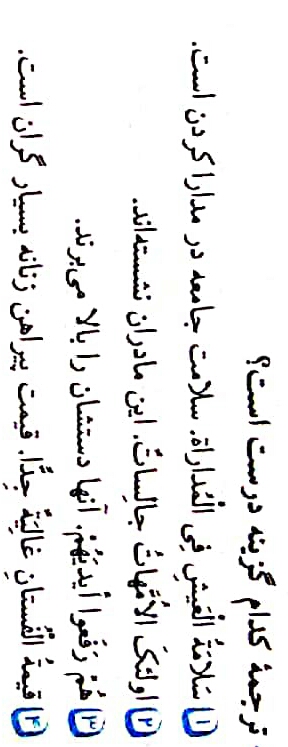 ترجمهٔ کدام گزینه درست است؟
۱) سَلامَةُ الْعَیشِ فِی الْمُداراة. سلامت جامعه در مدارا کردن است.
۲) اولئکَ الاُمَّهاتُ جالِساتٌ. این مادران نشسته‌اند.
۳) هُمْ رَفَعوا أیدیَهُمْ. آنها دستشان را بالا می‌برند.
۴) قیمةُ الْفُستانِ غالِیَةٌ جِدًّا. قیمت پیراهن زنانه بسیار گران است.